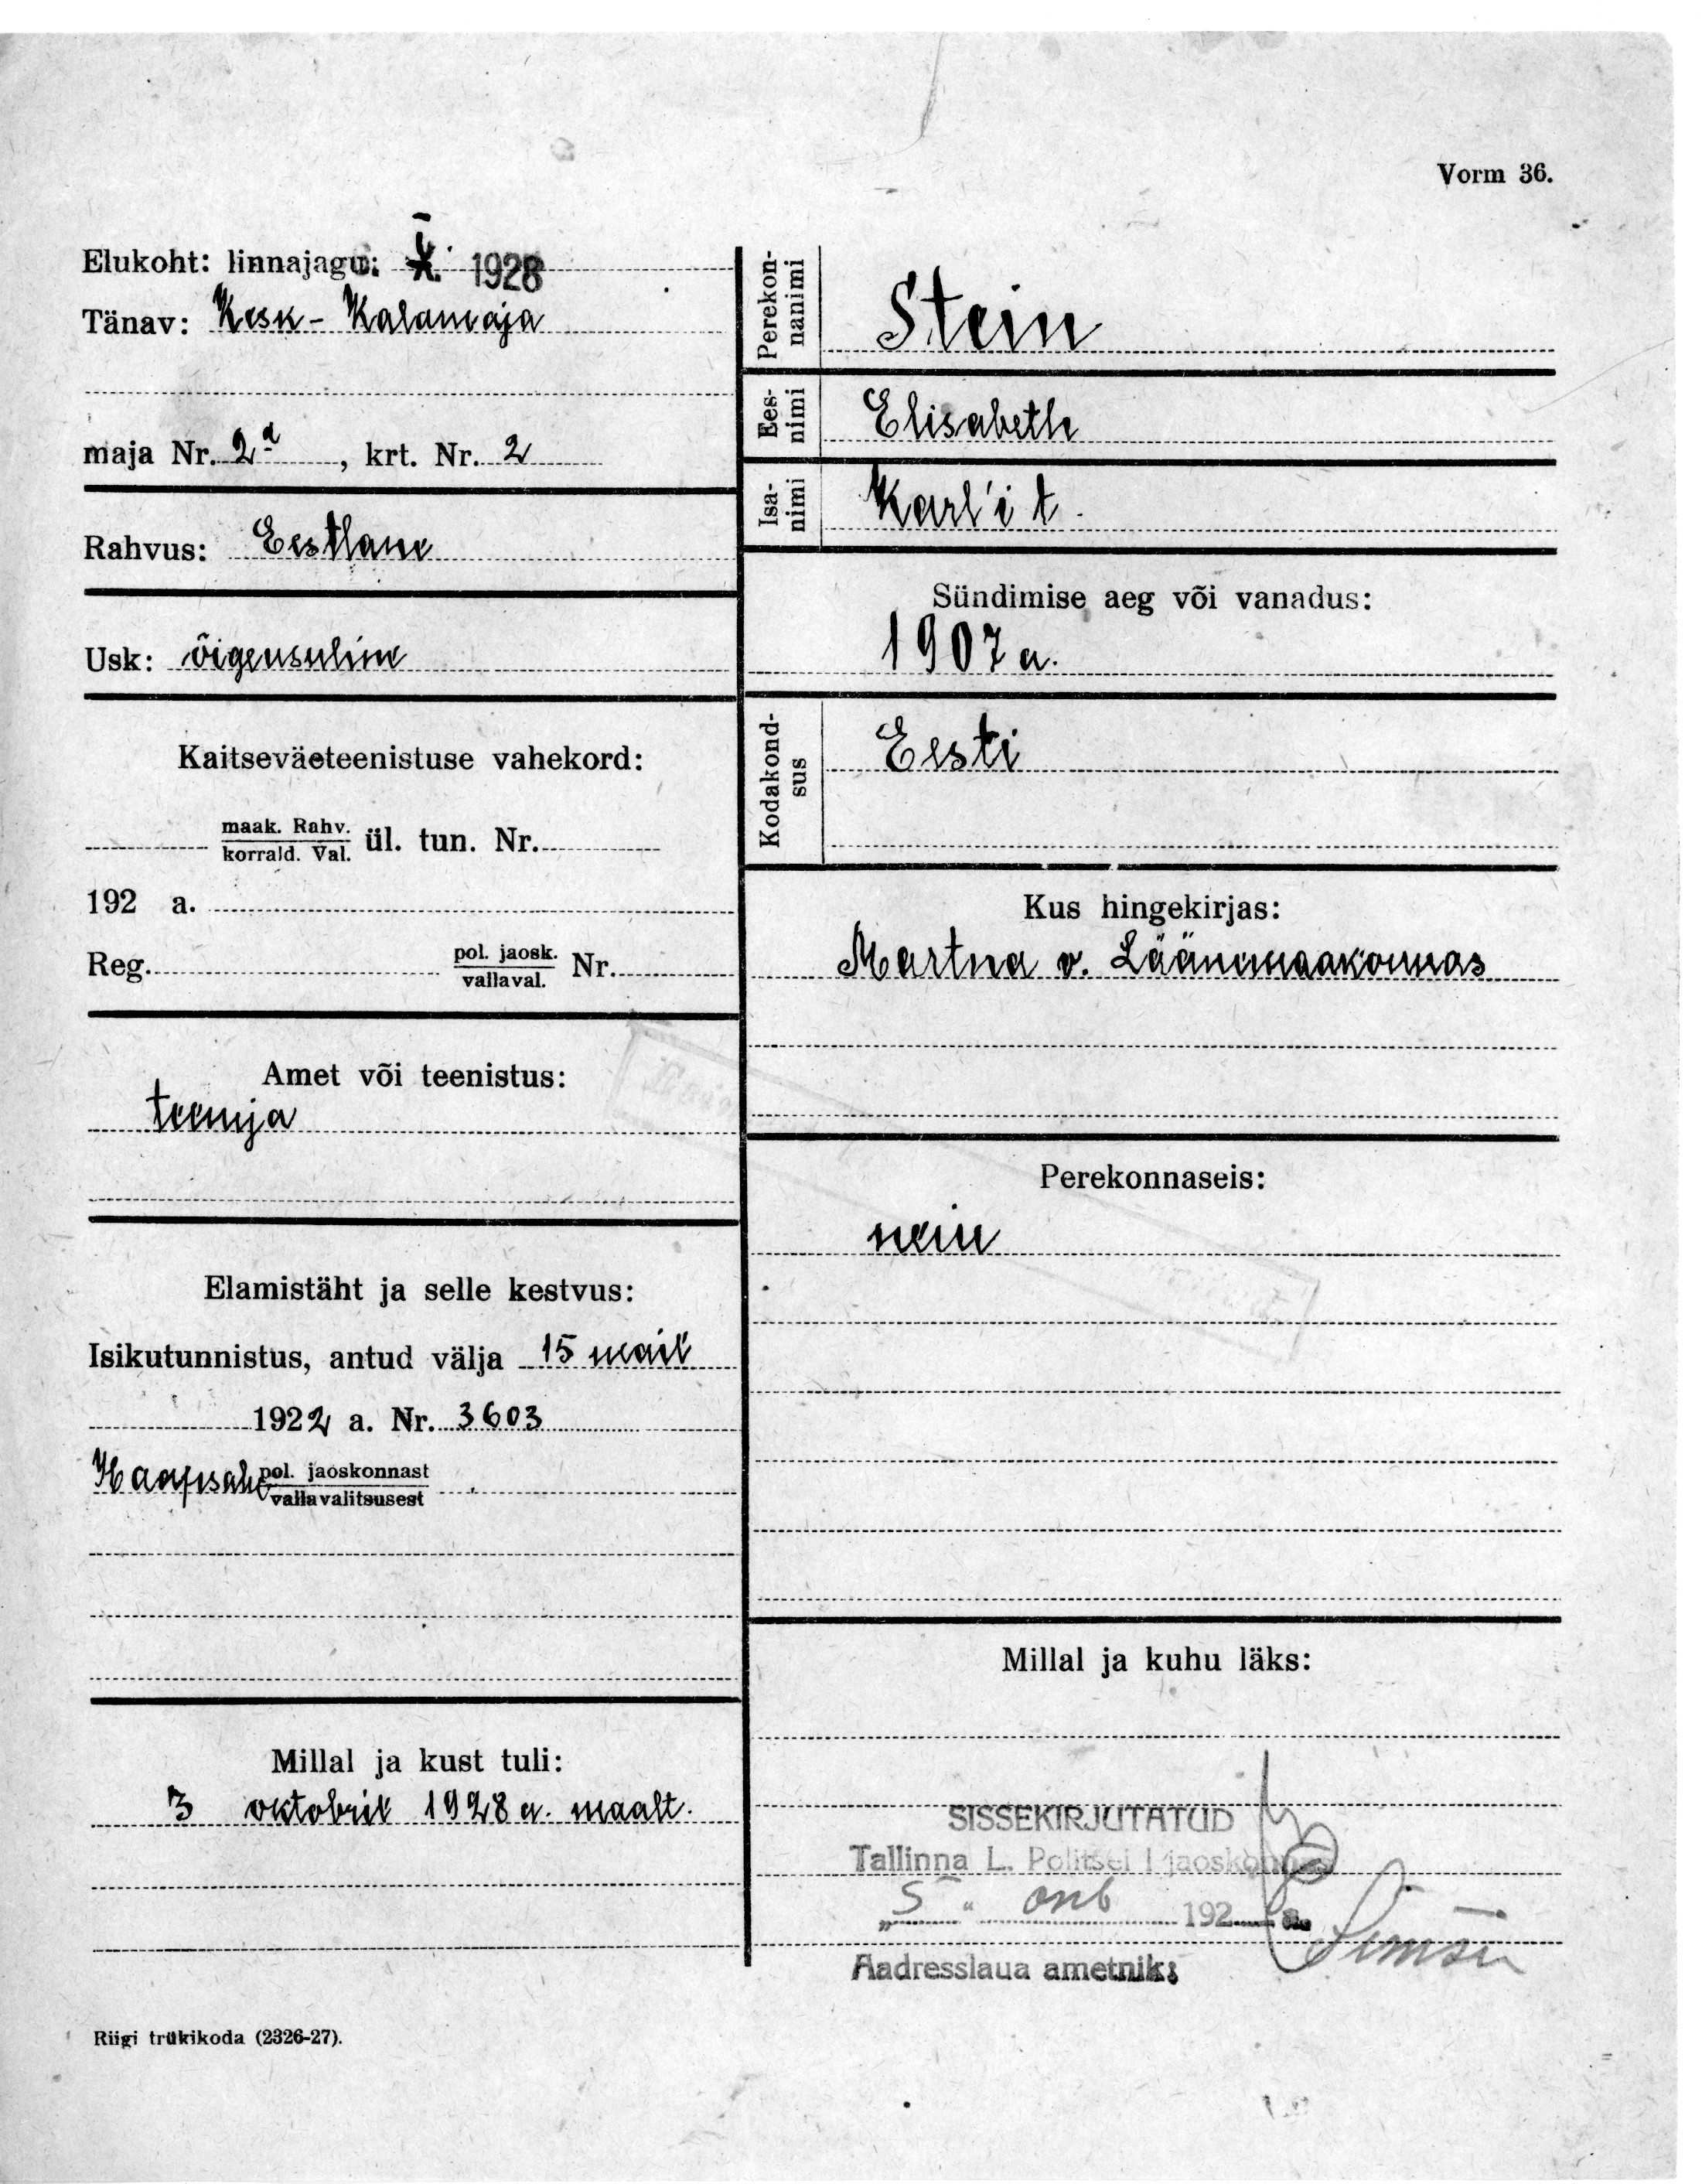 Vorm 36.
Elukoht: linnajagu: 1928
Tänav: Kesk-Kalamaja
maja Nr. 2a, krt. Nr. 2
Rahvus: Eestlane
Usk: õigeusuline
Kaitseväeteenistuse vahekord:
maak. Rahv.
korrald. Val. ül. tun. Nr.
192 a.
Reg. pol. jaosk.
vallaval. Nr.
Amet või teenistus:
teenija
Elamistäht ja selle kestvus:
Isikutunnistus, antud välja 15 mail
1922 a. Nr. 3603
Haapsalu pol. jaoskonnast
vallavalitsusest
Millal ja kust tuli:
3 oktobril 1928 a. maalt.
Riigi trükikoda (2326-27).
Perekon-
nanimi
Stein
Ees-
nimi
Elisabeth
Isa-
nimi
Karl'i t.
Sündimise aeg või vanadus:
1907 a.
Kodakond-
sus
Eesti
Kus hingekirjas:
Martna v. Läänemaakonnas
Perekonnaseis:
neiu
Millal ja kuhu läks:
SISSEKIRJUTATUD
Tallinna L. Politsei I jaoskonnas
"5" okt 192 a.
Aadresslaua ametnik: